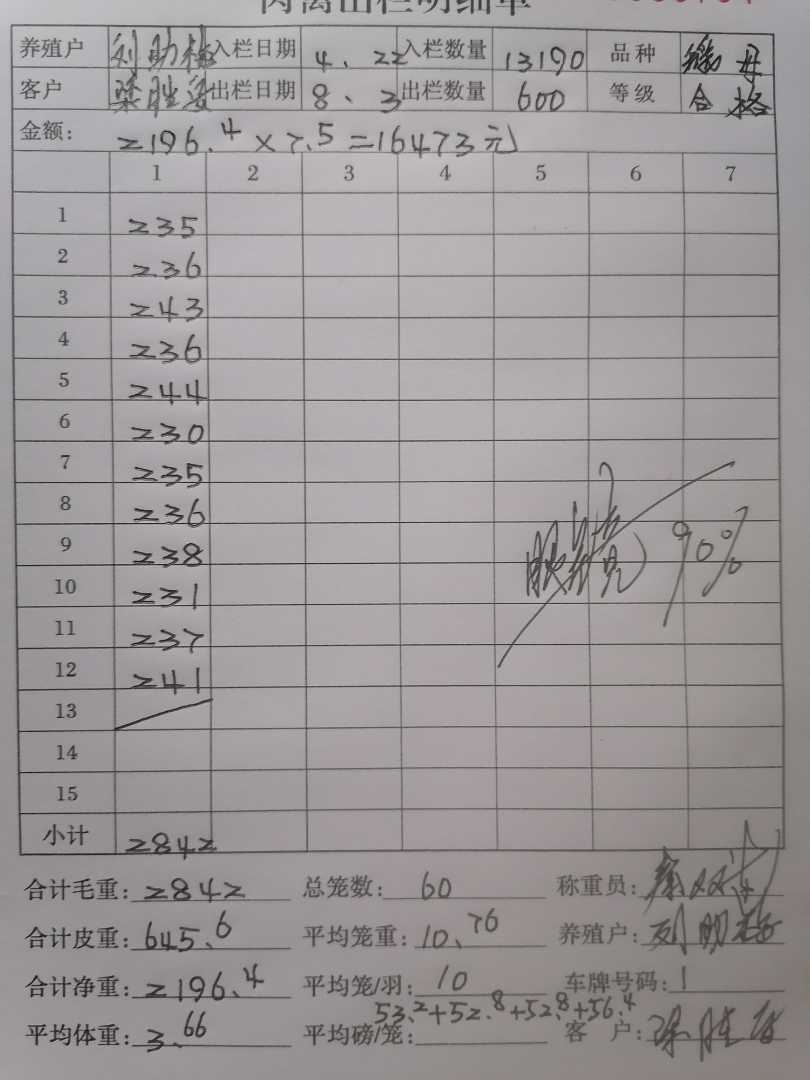 肉禽出栏明细单
养殖户 入栏日期 4、22 入栏数量 13190 品种
客户 出栏日期 8、3 出栏数量 600 等级 合格
金额: 2196.4×7.5=16473元
1 2 3 4 5 6 7
1 235
2 236
3 243
4 236
5 244
6 230
7 235
8 236
9 238
10 231
11 237
12 241
13
14
15
90%
小计 2842
合计毛重: 2842 总笼数: 60 称重员:
合计皮重: 645.6 平均笼重: 10.76 养殖户:
合计净重: 2196.4 平均笼/羽: 10 车牌号码:
53.2+52.8+52.8+56.4
平均体重: 3.66 平均磅/笼: 客 户: